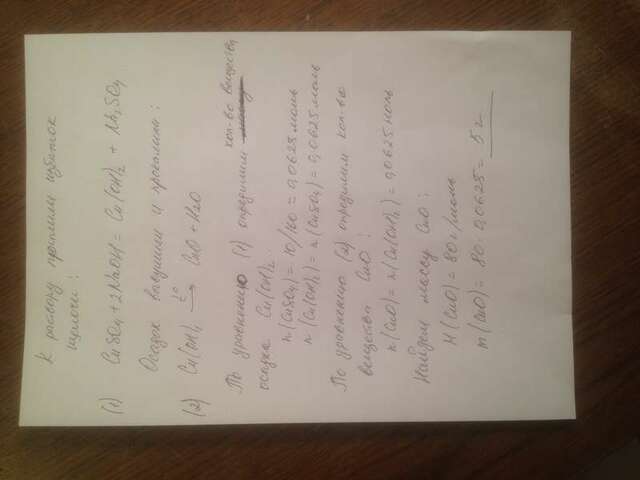 К раствору прилили избыток
щелочи:
(1) CuSO4 + 2NaOH = Cu(OH)2 + Na2SO4
Осадок высушили и прокалили:
(2) Cu(OH)2 t° → CuO + H2O
По уравнению (1) определили кол-во вещества
осадка Cu(OH)2
n(CuSO4) = 10/160 = 0,0625 моль
n(Cu(OH)2) = n(CuSO4) = 0,0625 моль
По уравнению (2) определили кол-во
вещества CuO:
n(CuO) = n(Cu(OH)2) = 0,0625 моль
Найдем массу CuO:
M(CuO) = 80 г/моль
m(CuO) = 80 · 0,0625 = 5 г